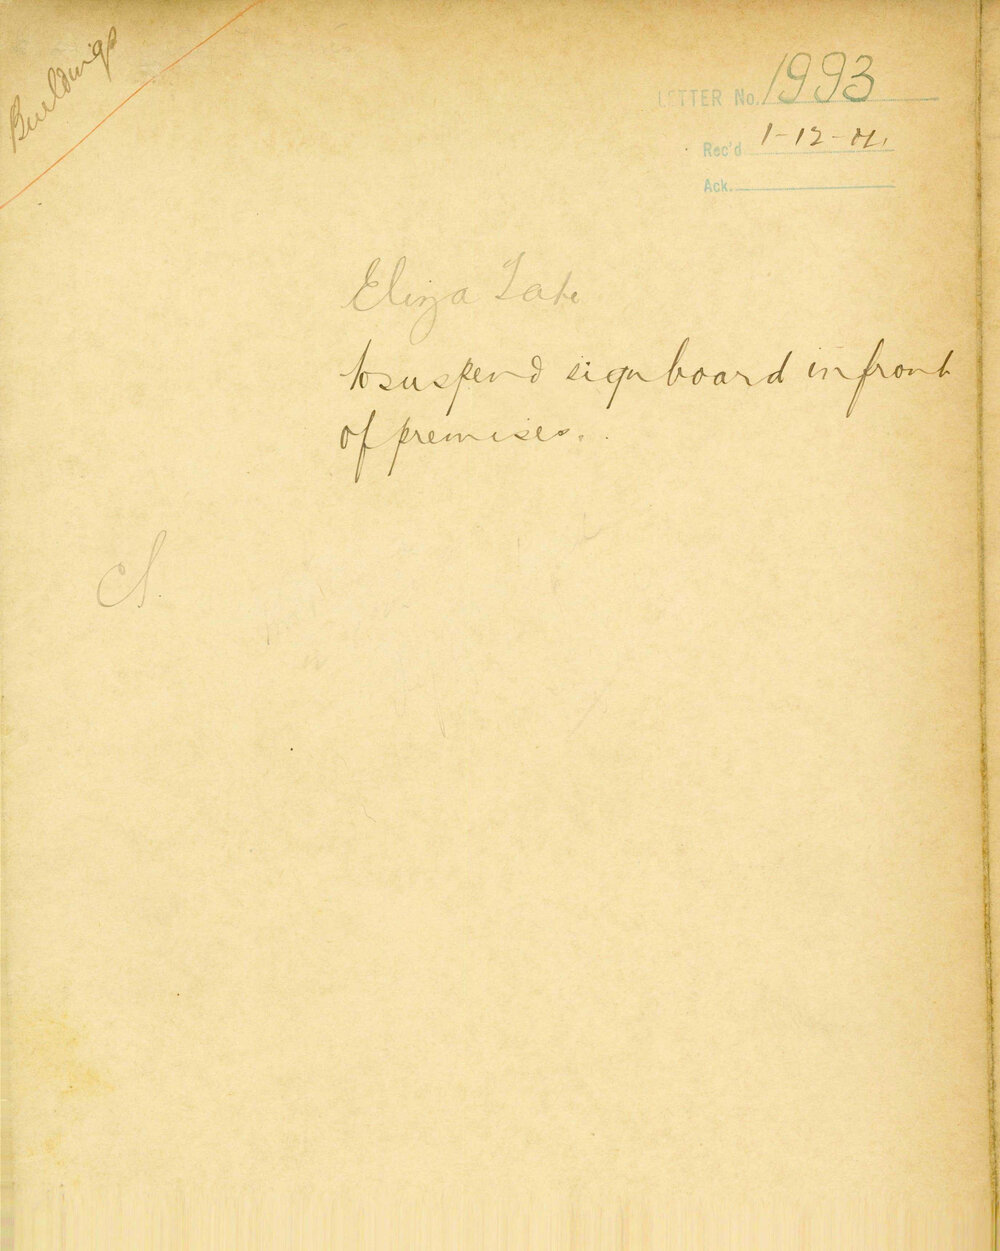 Buildings
LETTER No. 1993
Rec'd 1-12-04.
Ack.
Eliza Tate
to suspend signboard in front
of premises.